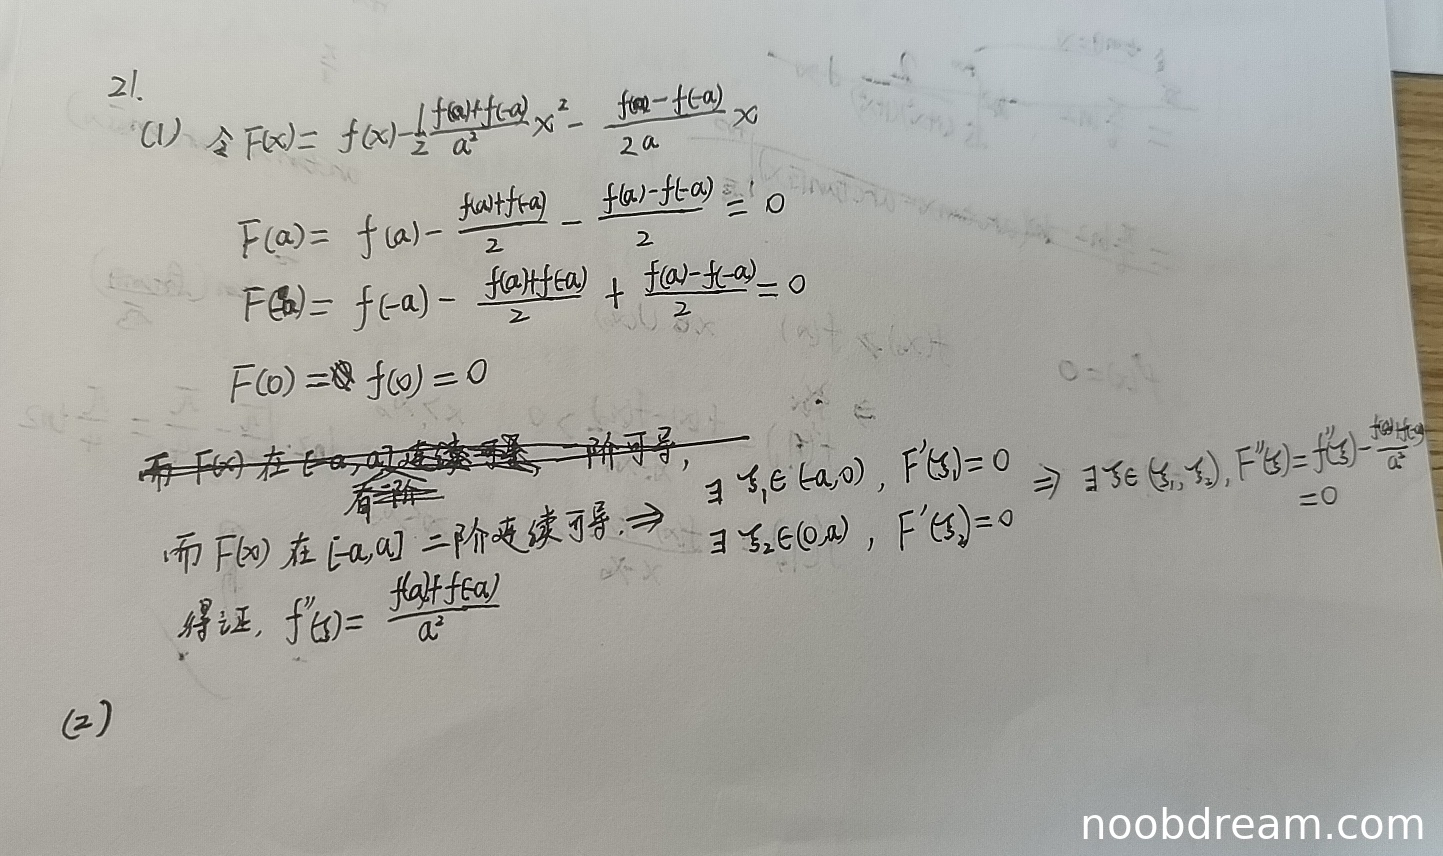 21.
(1) 令 F(x) = f(x) - \frac{1}{2} \frac{f(a)+f(-a)}{a^2} x^2 - \frac{f(a)-f(-a)}{2a} x
F(a) = f(a) - \frac{f(a)+f(-a)}{2} - \frac{f(a)-f(-a)}{2} = 0
F(-a) = f(-a) - \frac{f(a)+f(-a)}{2} + \frac{f(a)-f(-a)}{2} = 0
F(0) = f(0) = 0
而 F(x) 在 [-a, a] 连续可导, 一阶可导,
有二阶
而 F(x) 在 [-a, a] 二阶连续可导. ⇒ ∃ ξ₁∈(-a,0), F'(ξ₁)=0
∃ ξ₂∈(0,a), F'(ξ₂)=0
⇒ ∃ ξ∈(ξ₁, ξ₂), F''(ξ) = f''(ξ) - \frac{f(a)+f(-a)}{a^2}
=0
得证, f''(ξ) = \frac{f(a)+f(-a)}{a^2}
(2)
noobdream.com